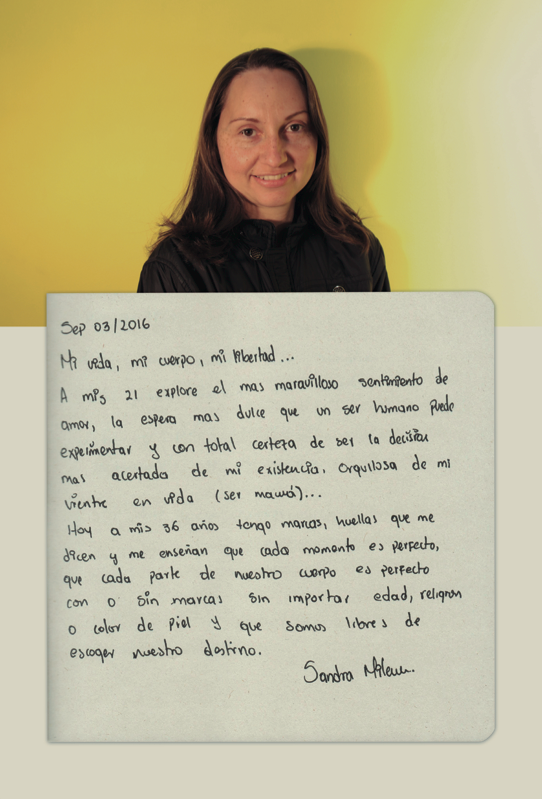 Sep 03/2016
Mi vida, mi cuerpo, mi libertad...
A mis 21 explore el mas maravilloso sentimiento de
amor, la espera mas dulce que un ser humano puede
experimentar y con total certeza de ser la decisión
mas acertada de mi existencia. Orgullosa de mi
vientre en vida (ser mamá)...
Hoy a mis 36 años tengo marcas, huellas que me
dicen y me enseñan que cada momento es perfecto,
que cada parte de nuestro cuerpo es perfecto
con o sin marcas sin importar edad, religion
o color de piel y que somos libres de
escoger nuestro destino.
Sandra Milena.